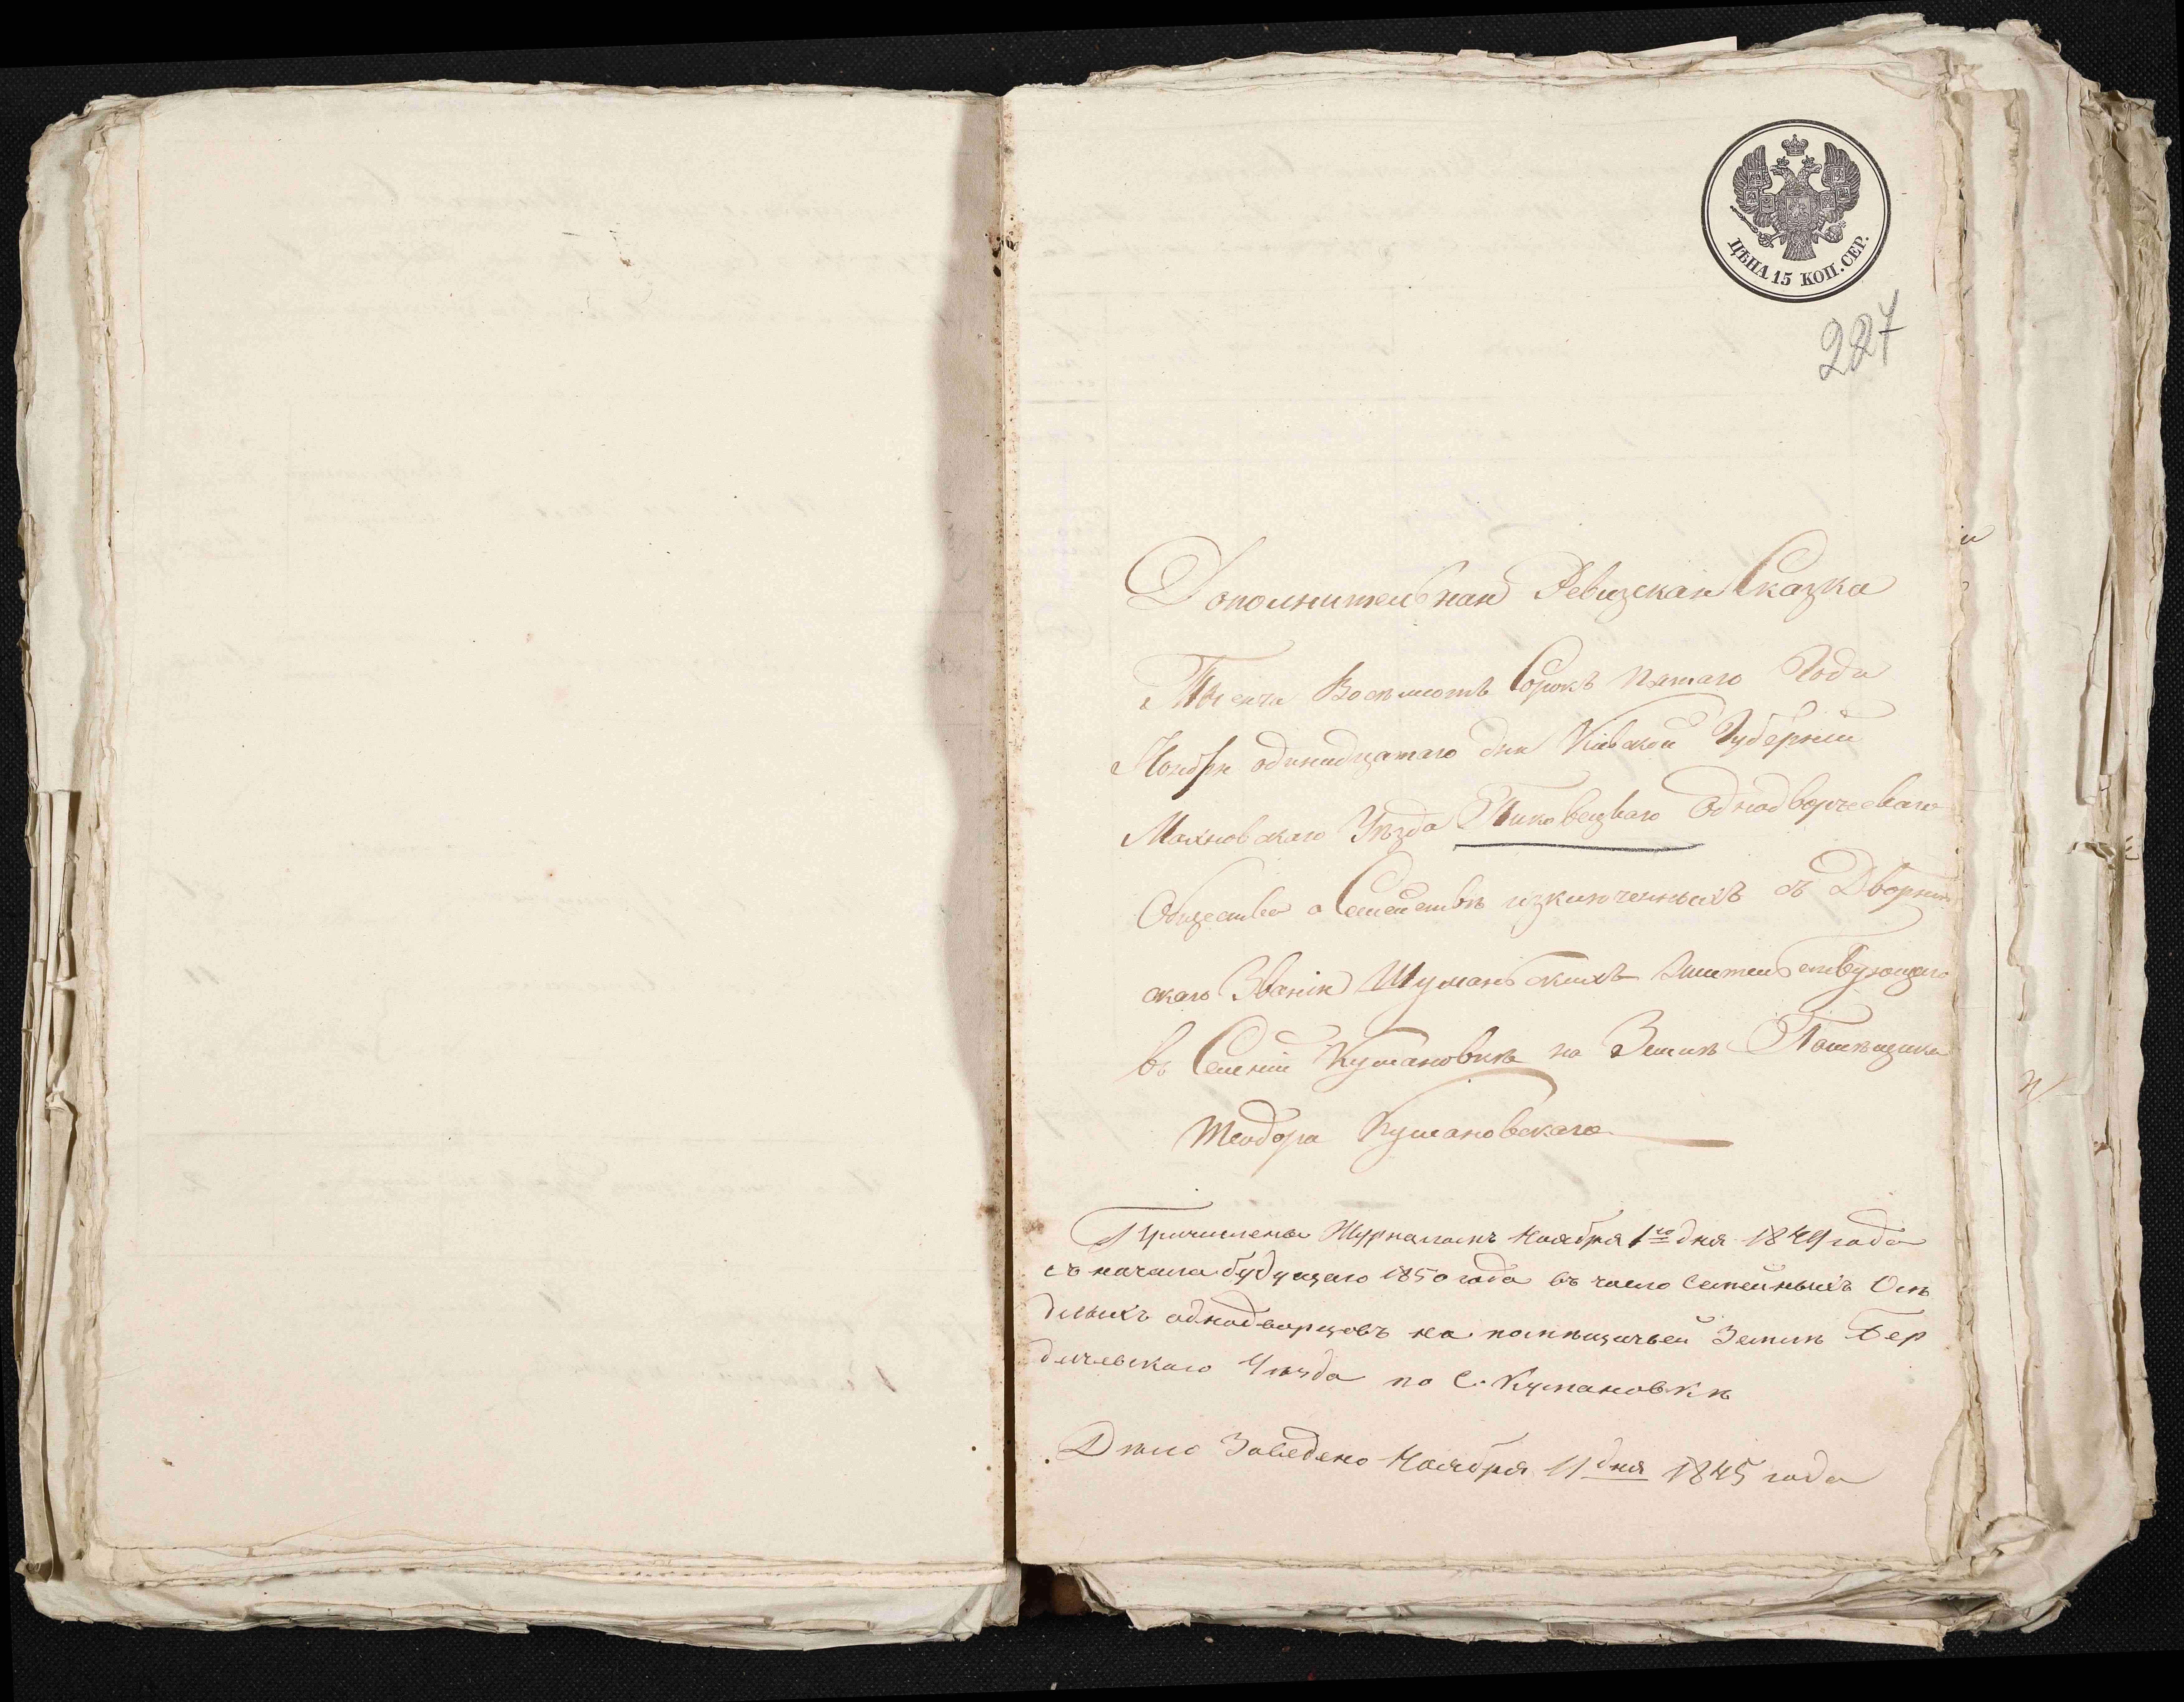 ЦѢНА 15 КОП. СЕР.
227
Дополнительная Ревизская Сказка
Тысяча Восемсотъ Сорокъ Пятаго Года
Ноября одинадцатаго дня Кіевской Губерніи
Махновскаго Уѣзда Тиковецкаго Однодворческаго
Общества о Семействѣ изключенныхъ съ Дворян
скаго Званія Шуманскихъ жительствующаго
въ Селеніи Кумановкѣ на Землѣ Помѣщика
Теодора Кумановскаго
Причислены Журналомъ Ноября 1го дня 1849 года
съ начала будущаго 1850 года въ число Семейныхъ Осѣ
длыхъ однодворцовъ на помѣщичьей Землѣ Бер
дичевскаго Уѣзда по С. Кумановкѣ
Дѣло Заведено Ноября 11 дня 1845 года